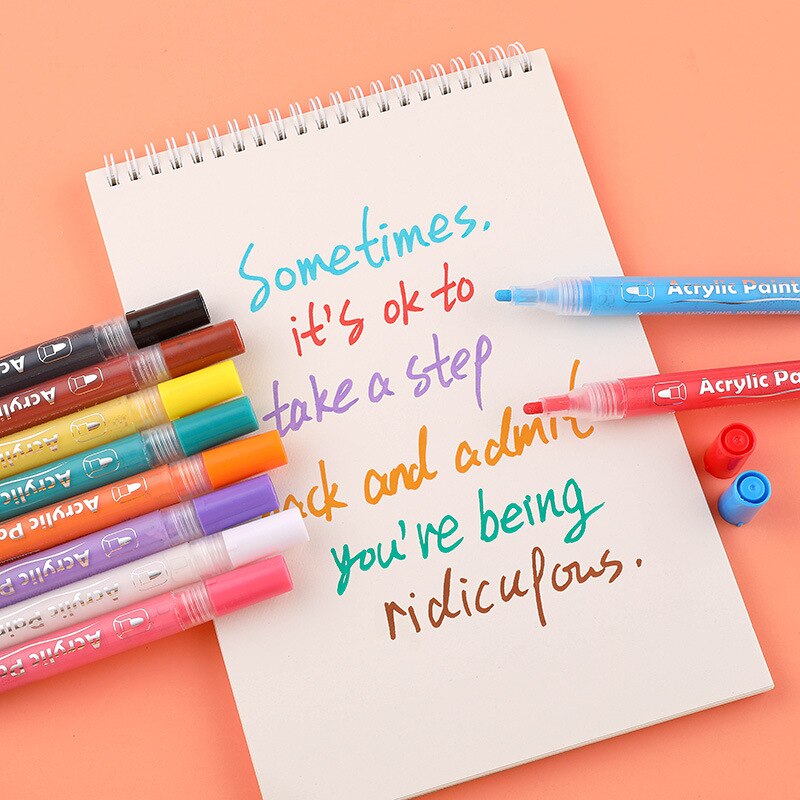 Sometimes.
it's ok to
take a step
back and admit
you're being
ridicupous.
Acrylic Paint
Acrylic Pa
Ac
Acrylic
Acrylic
Acrylic
Acrylic Pa
Acrylic Pa
Acrylic Paint
Acrylic Paint